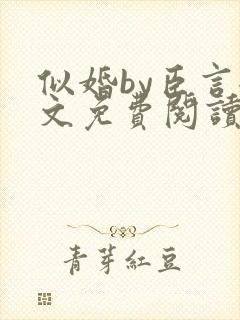 似婚by臣言
文免費閱讀
青芽紅豆